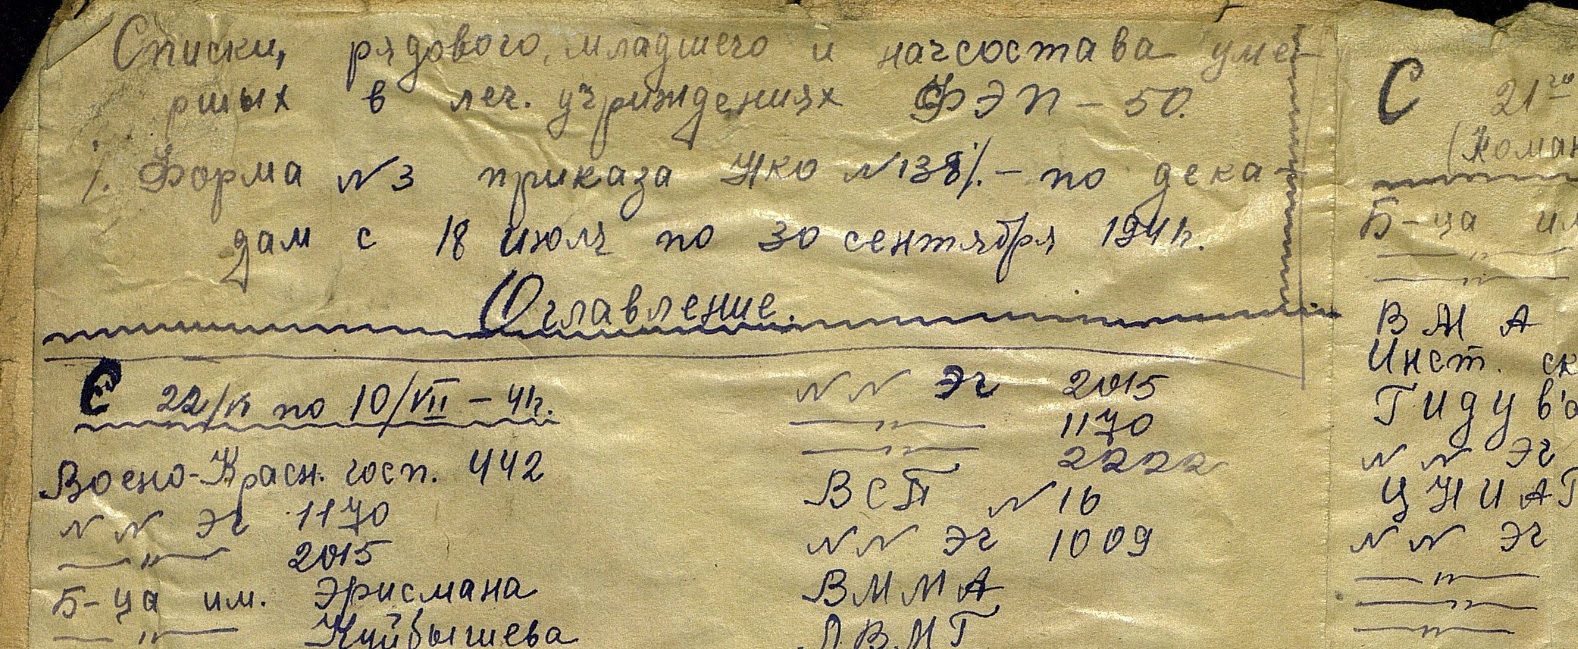 Списки, рядового, младшего и начсостава уме-
рших в леч. учриждениях ФЭП - 50.
/. Форма №3 приказа НКО №138/. - по дека-
дам с 18 июля по 30 сентября 1941г.
Оглавление.
С 22/VI по 10/VII - 41г.
Воено-Красн. госп. 442
NN ЭГ 1170
—„— 2015
Б-ца им. Эрисмана
—„— Куйбышева
NN ЭГ 2015
—„— 1170
—„— 2222
ВСП №16
NN ЭГ 1009
ВММА
ЛВМГ
С 21го
(Коман
Б-ца им
—„—
—„—
ВМА
Инст. ск
ГИДУВ'а
NN ЭГ
ЦНИАГ
NN ЭГ
—„—
—„—
—„—